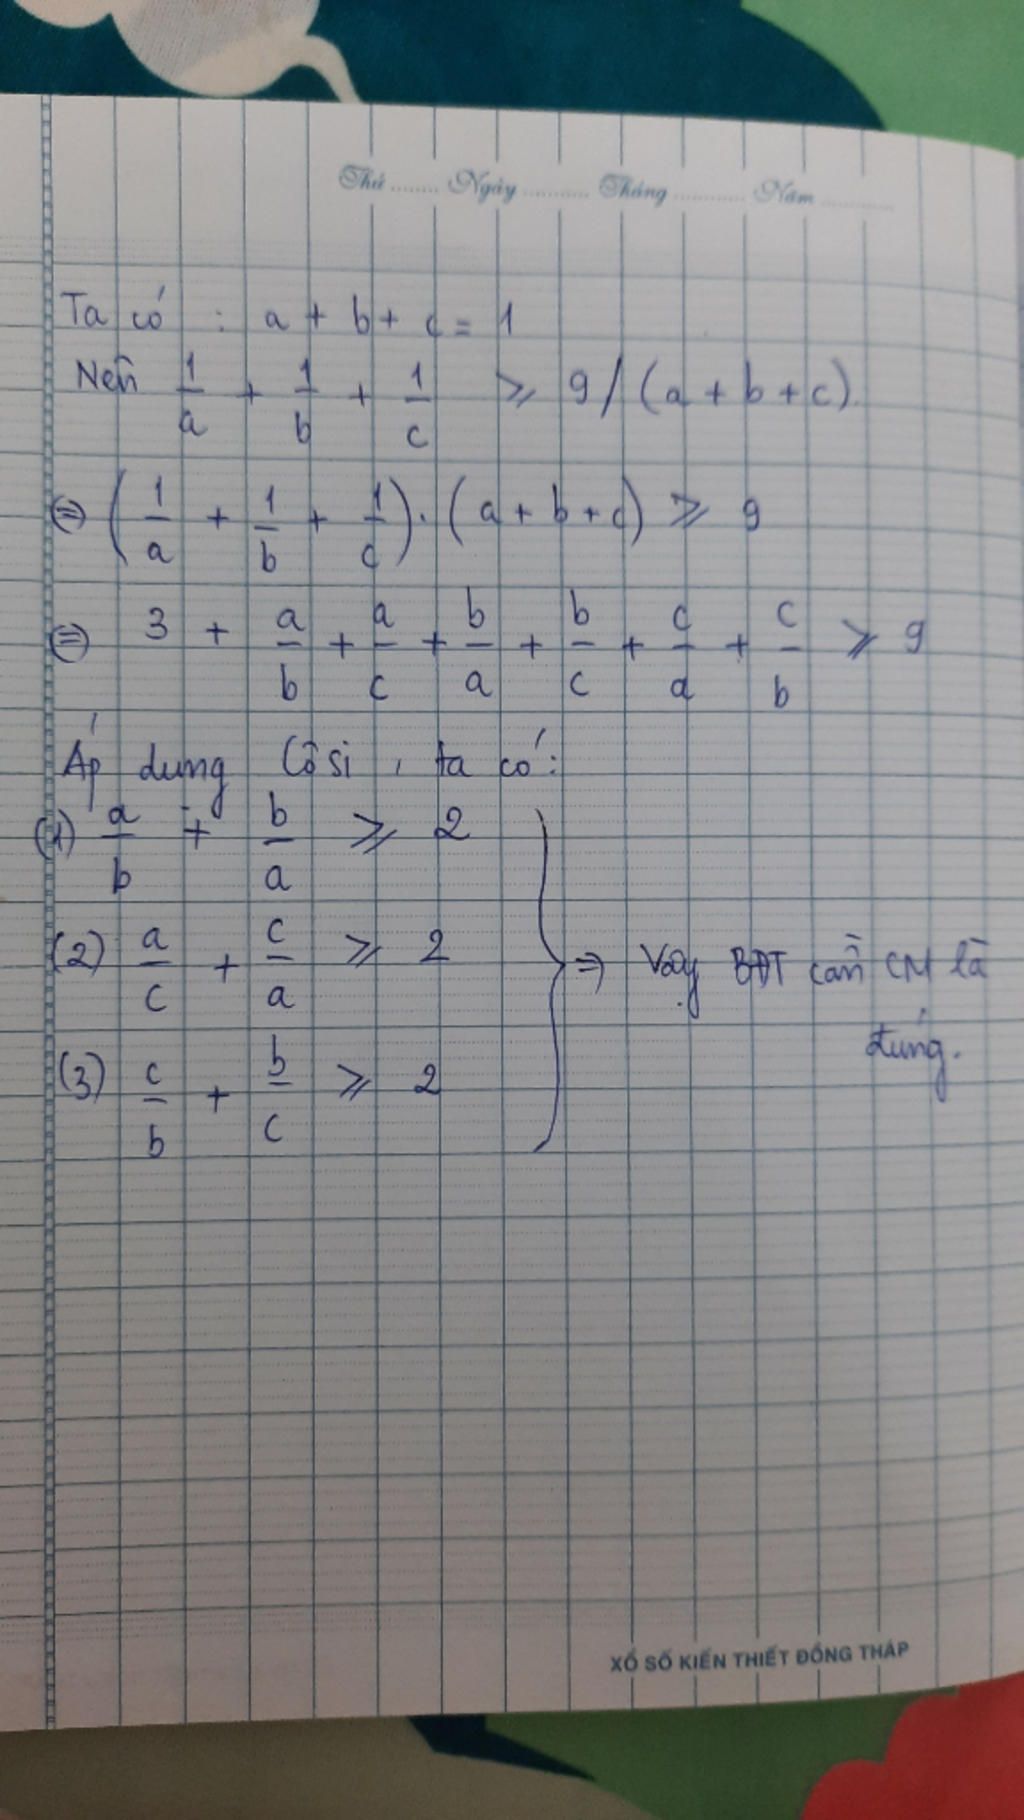 Thứ ........ Ngày ........... Tháng ............ Năm ............
Ta có : a + b + c = 1
Nên 1/a + 1/b + 1/c ⩾ 9/(a + b + c).
⇔ (1/a + 1/b + 1/c) . (a + b + c) ⩾ 9
⇔ 3 + a/b + a/c + b/a + b/c + c/a + c/b ⩾ 9
Áp dụng Côsi, ta có:
(1) a/b + b/a ⩾ 2
(2) a/c + c/a ⩾ 2
(3) c/b + b/c ⩾ 2
⇒ Vậy BĐT cần CM là
đúng.
XỔ SỐ KIẾN THIẾT ĐỒNG THÁP